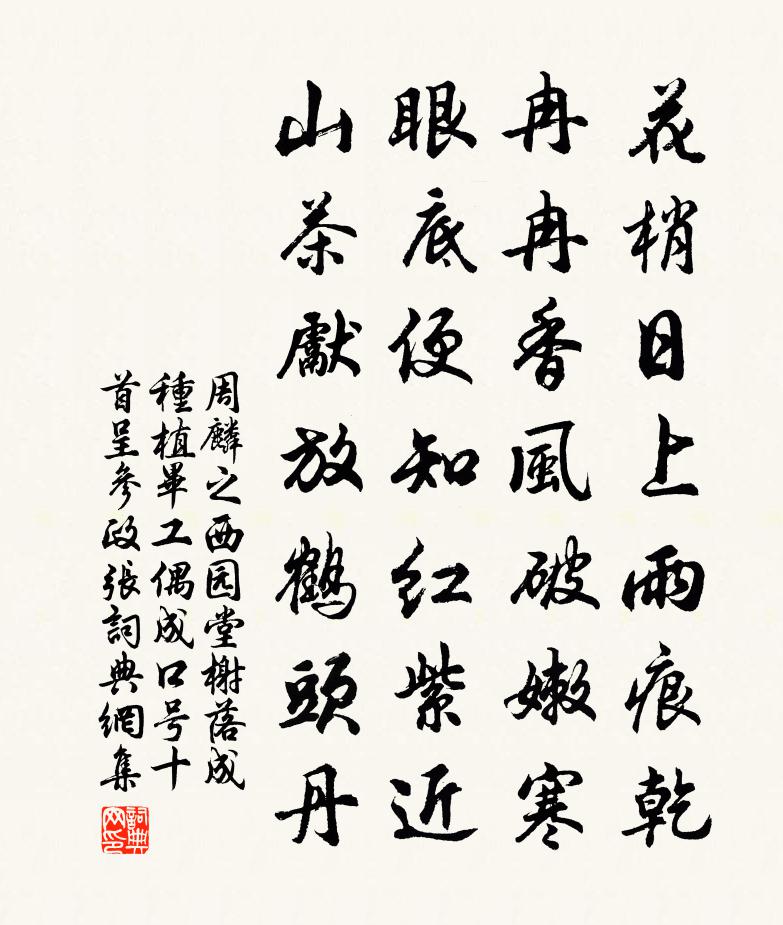 花梢日上雨痕乾
冉冉香風破嫩寒
眼底便知紅紫近
山茶獻放鶴頭丹
周麟之西园堂榭落成
種植畢工偶成口号十
首呈參政張詞典網集
詞典
网印